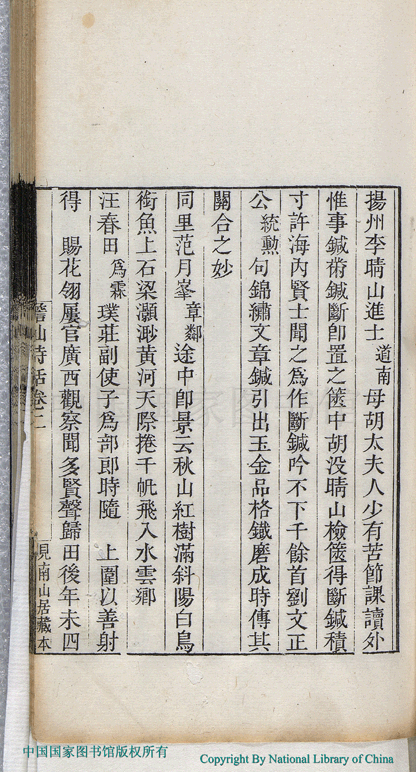 揚州李晴山進士道南母胡太夫人少有苦節課讀外
惟事鍼術鍼斷即置之篋中胡没晴山檢篋得斷鍼積
寸許海內賢士聞之為作斷鍼吟不下千餘首劉文正
公統勲句錦繡文章鍼引出玉金品格鐵磨成時傳其
關合之妙
同里范月峯章鄰途中即景云秋山紅樹滿斜陽白鳥
銜魚上石梁灝渺黃河天際捲千帆飛入水雲鄉
汪春田為霖璞莊副使子為部郎時隨 上圍以善射
得 賜花翎屢官廣西觀察聞多賢聲歸田後年未四
山詩話卷二
見南山居藏本
中国国家图书馆版权所有
Copyright By National Library of China